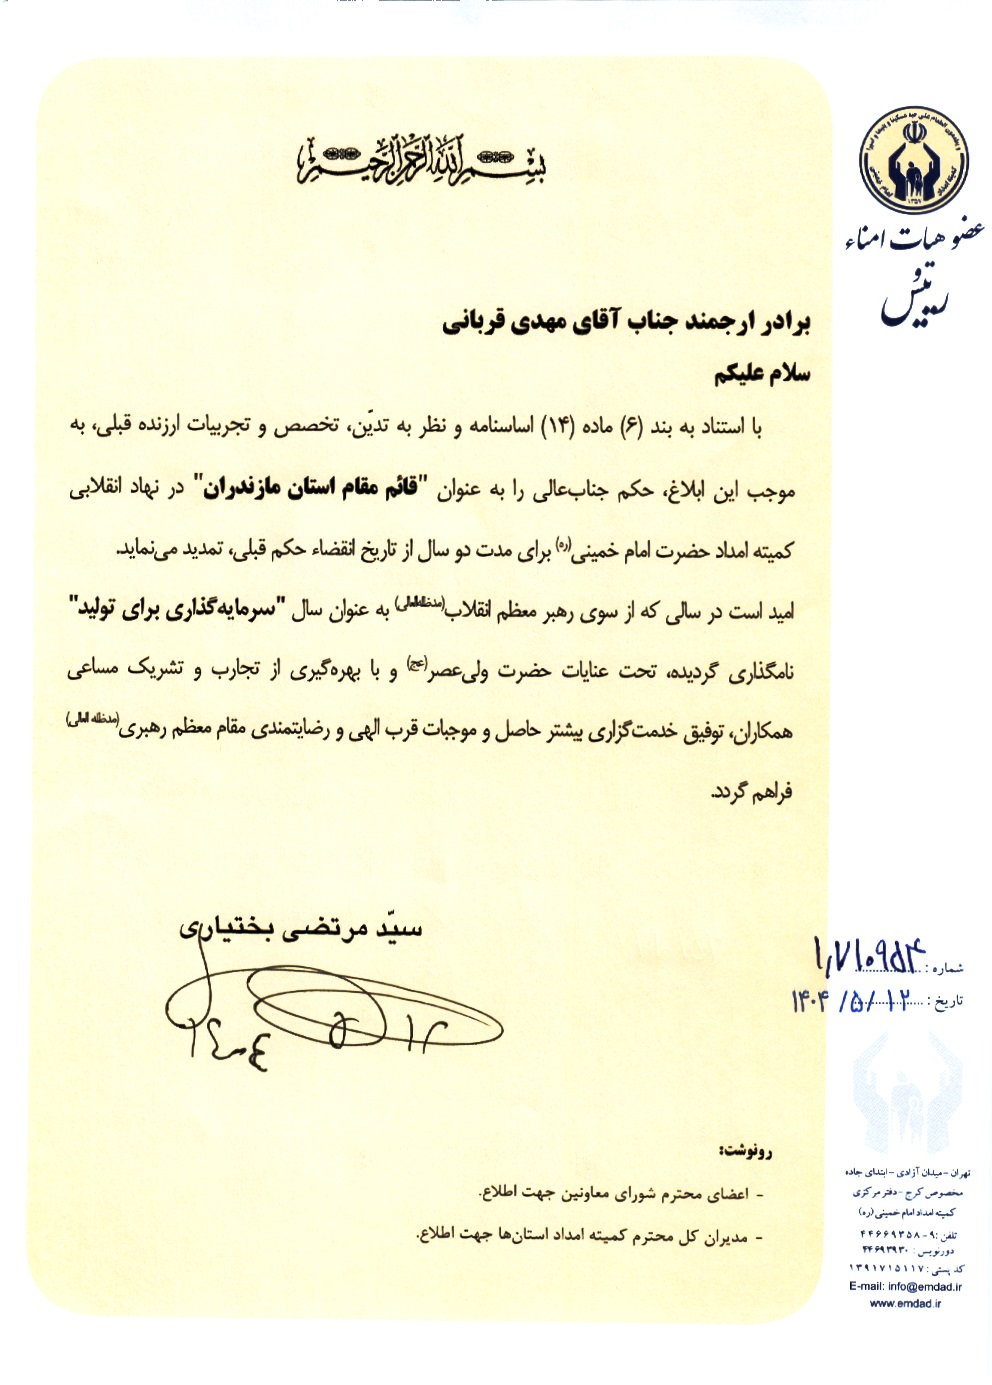 بسم الله الرحمن الرحیم
کمیته امداد امام خمینی
۱۳۵۷
عضو هیات امناء
و
رئیس
برادر ارجمند جناب آقای مهدی قربانی
سلام علیکم
با استناد به بند (۶) ماده (۱۴) اساسنامه و نظر به تدیّن، تخصص و تجربیات ارزنده قبلی، به
موجب این ابلاغ، حکم جناب‌عالی را به عنوان "قائم مقام استان مازندران" در نهاد انقلابی
کمیته امداد حضرت امام خمینی(ره) برای مدت دو سال از تاریخ انقضاء حکم قبلی، تمدید می‌نماید.
امید است در سالی که از سوی رهبر معظم انقلاب(مدظله‌العالی) به عنوان سال "سرمایه‌گذاری برای تولید"
نامگذاری گردیده، تحت عنایات حضرت ولی‌عصر(عج) و با بهره‌گیری از تجارب و تشریک مساعی
همکاران، توفیق خدمت‌گزاری بیشتر حاصل و موجبات قرب الهی و رضایتمندی مقام معظم رهبری(مدظله العالی)
فراهم گردد.
سیّد مرتضی بختیاری
۱۴۰۴ ۵ ۱۲
شماره : ۱,۷۱۰۹۵۴
تاریخ : ۱۴۰۴ /۵/۱۲
رونوشت:
- اعضای محترم شورای معاونین جهت اطلاع.
- مدیران کل محترم کمیته امداد استان‌ها جهت اطلاع.
تهران - میدان آزادی - ابتدای جاده
مخصوص کرج - دفتر مرکزی
کمیته امداد امام خمینی (ره)
تلفن : ۹-۴۴۶۶۹۳۵۸
دورنویس : ۴۴۶۹۳۹۳۰
کد پستی : ۱۳۹۱۷۱۵۱۱۷
E-mail: info@emdad.ir
www.emdad.ir